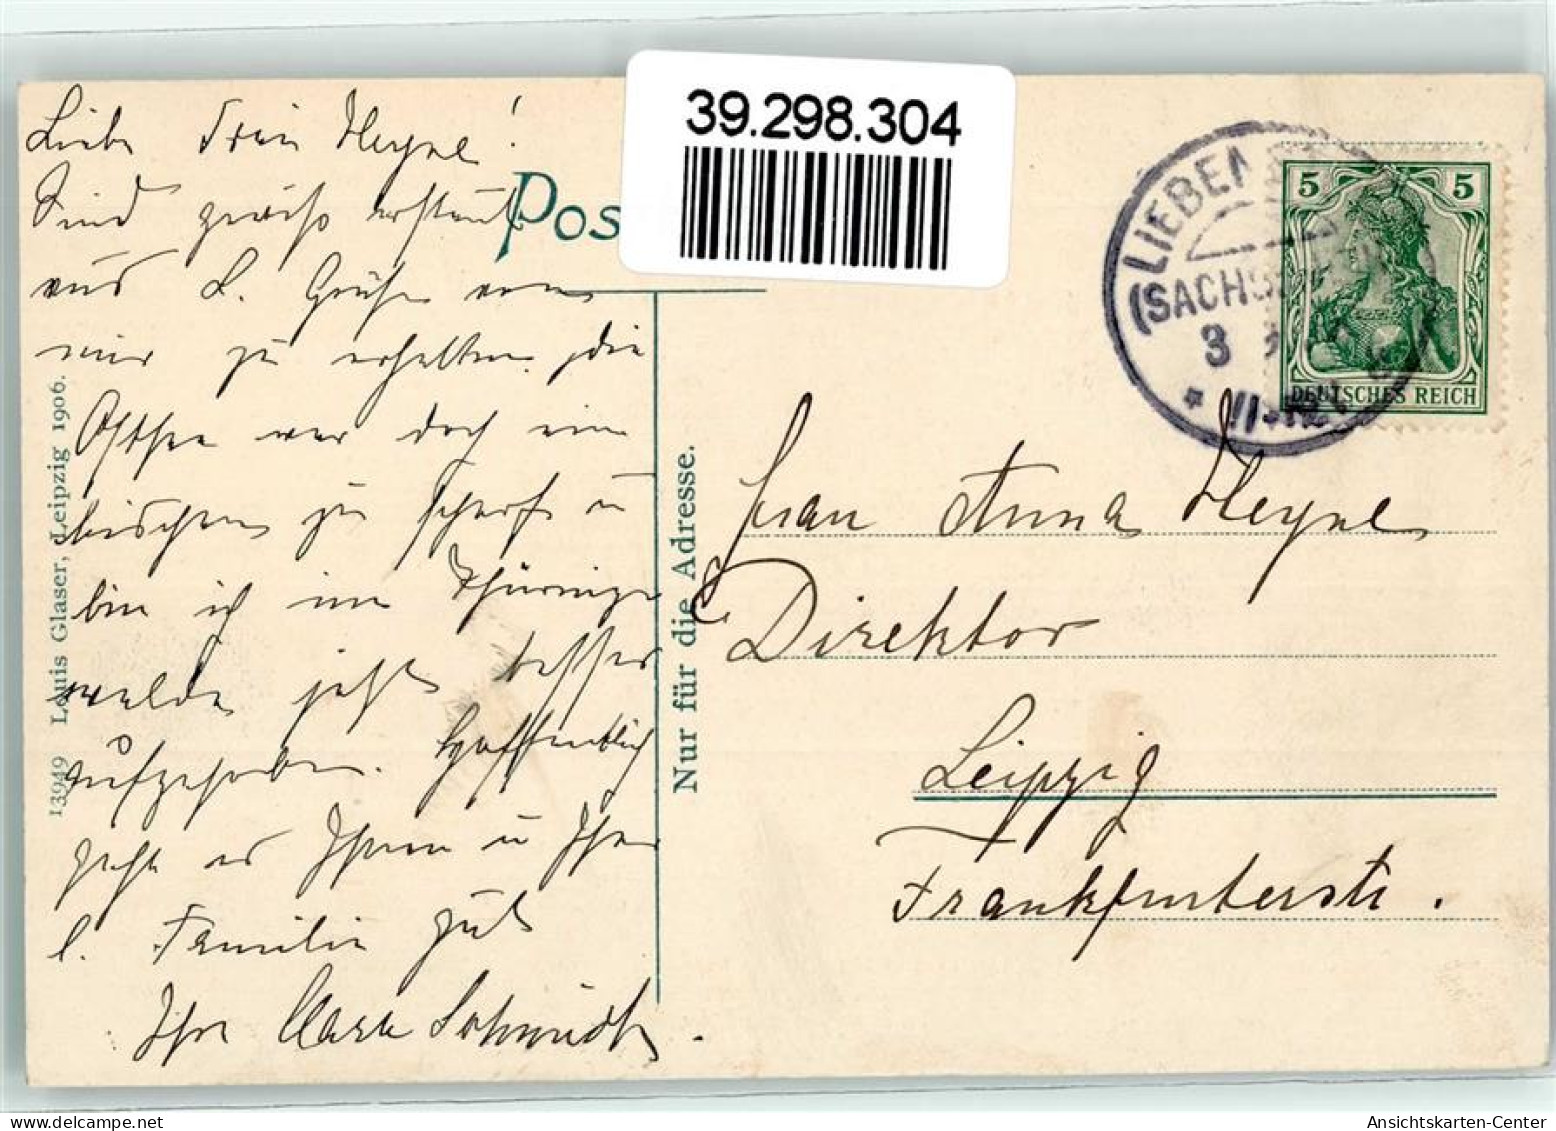 Liebe Frau Heyne!
Sind gewiss erstaunt
aus L. Grüße von
mir zu erhalten, die
Ostsee war doch ein
bischen zu scharf u
bin ich im Thüringer
walde jetzt besser
aufgehoben. Hoffentlich
geht es Ihnen u Ihrer
l. Familie gut
Ihre Clara Schmidt.
13949 Louis Glaser, Leipzig 1906.
Pos
39.298.304
Nur für die Adresse.
LIEBEN
(SACHS
3
5 5
DEUTSCHES REICH
Frau Anna Heyne
Direktor
Leipzig
Frankfurterstr.
oldthing.de
Ansichtskarten-Center